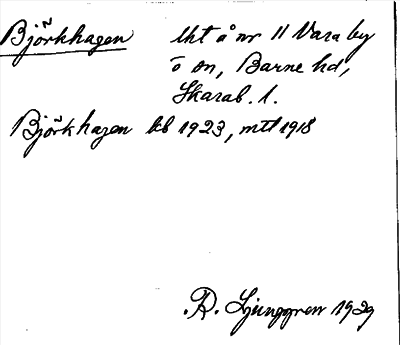 Björkhagen lht å nr 11 Vara by
o sn, Barne hd,
Skarab. l.
Björkhagen kb 1923, mtl 1918
R. Ljunggren 1929